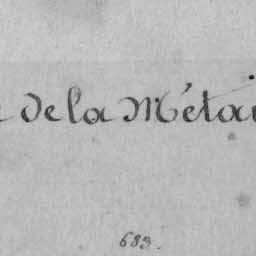 de la Métai
683.